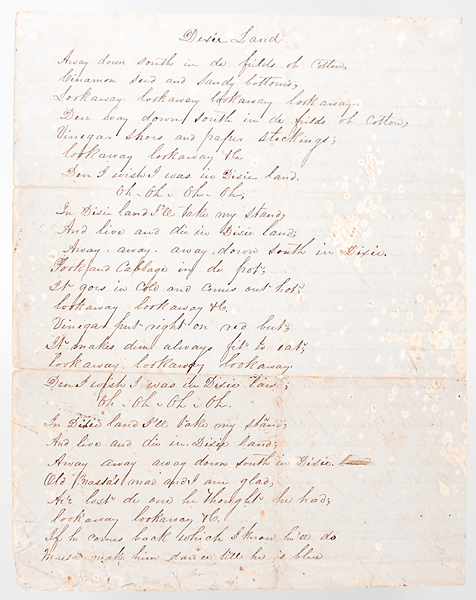 Dixie Land
Away down south in de fields ob Cotton,
Cinamon seed and sandy bottoms;
Lookaway lookaway lookaway lookaway.
Den way down south in de fields ob Cotton,
Vinegar shoes and paper stockings;
lookaway lookaway &c
Den I wish I was in Dixie land.
Oh. Oh. Oh. Oh,
In Dixie land I'll take my stand,
And live and die in Dixie land;
Away. away. away. down south in Dixie.
Pork and Cabbage in de pot;
It goes in cold and comes out hot;
lookaway. lookaway &c.
Vinegar put right on red
It makes dem always fit to eat;
lookaway. lookaway lookaway
Den I wish I was in Dixie
Oh. Oh. Oh. Oh.
In Dixie land I'll take my stand;
And live and die in Dixie land;
Away away away down south in Dixie
Old Massa's mad and I am glad,
He's lost de one he thought he had;
lookaway lookaway &c.
If he comes back which I know he'll do
Massa make him dance till he is blue